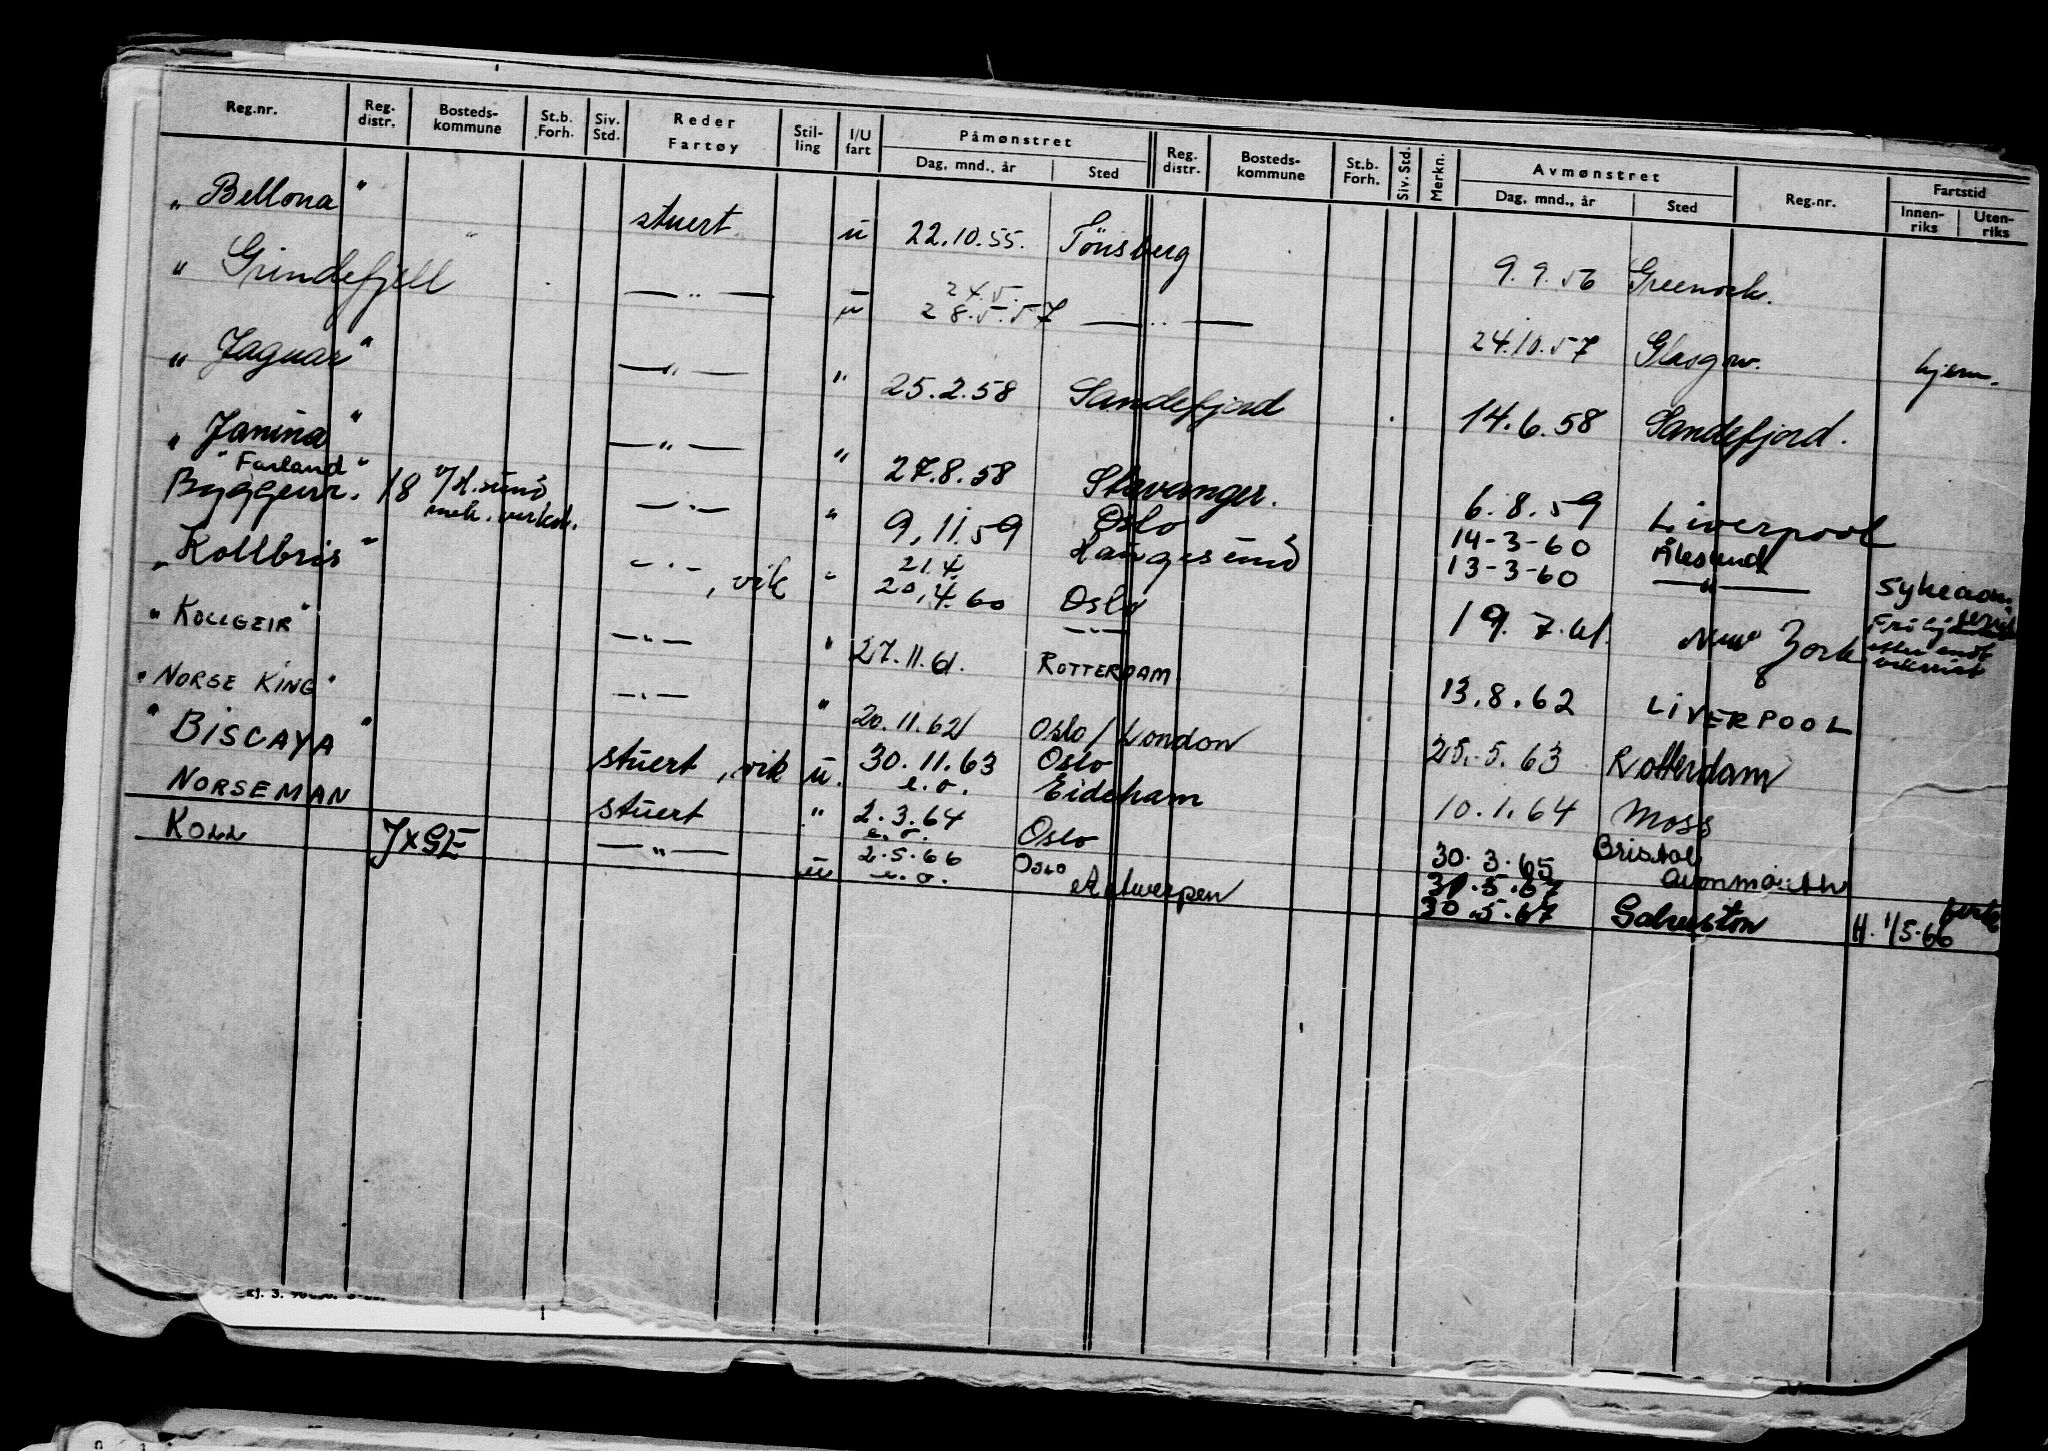 Reg.nr. Reg. distr. Bosteds-kommune St.b. Forh. Siv. Std. Reder Fartøy Stil-ling I/U fart Påmønstret Dag, mnd., år Sted Reg. distr. Bosteds-kommune St.b. Forh. Siv. Std. Merkn. Avmønstret Dag, mnd., år Sted Reg.nr. Fartstid Innen-riks Uten-riks
"Bellona" stuert u 22.10.55. Tönsberg 9.9.56 Greenock.
" Grindefjell — " — u 24.5. 28.5.57 — " — 24.10.57 Glasgow. hjem.
" Jaguar" — " — " 25.2.58 Sandefjord 14.6.58 Sandefjord.
" Janina" — " — " 27.8.58 Stavanger. 6.8.59 Liverpool
"Farland"
Byggenr. 18 v/L.sund mek. verkst. — " — " 9.11.59 Oslo Langesund 14-3-60 Ålesund 13-3-60 — " —
"Kollbris" — " — , vik " 21.4. 20.4.60 Oslo — " — 19.7.61. New York
"KOLLGEIR" — " — " 27.11.61. ROTTERDAM 13.8.62 LIVERPOOL
"NORSE KING" — " — " 20.11.62 Oslo / London 25.5.63 Rotterdam
"BISCAYA" stuert, vik u. 30.11.63 e.o. Oslo 10.1.64 Moss
NORSEMAN stuert " 2.3.64 e.o. Oslo 30.3.65 Bristol Avonmouth
KOLL JXGE — " — u 2.5.66 e.o. Oslo Antwerpen 31.5.67 30.5.67 Galveston H. 1/5.66